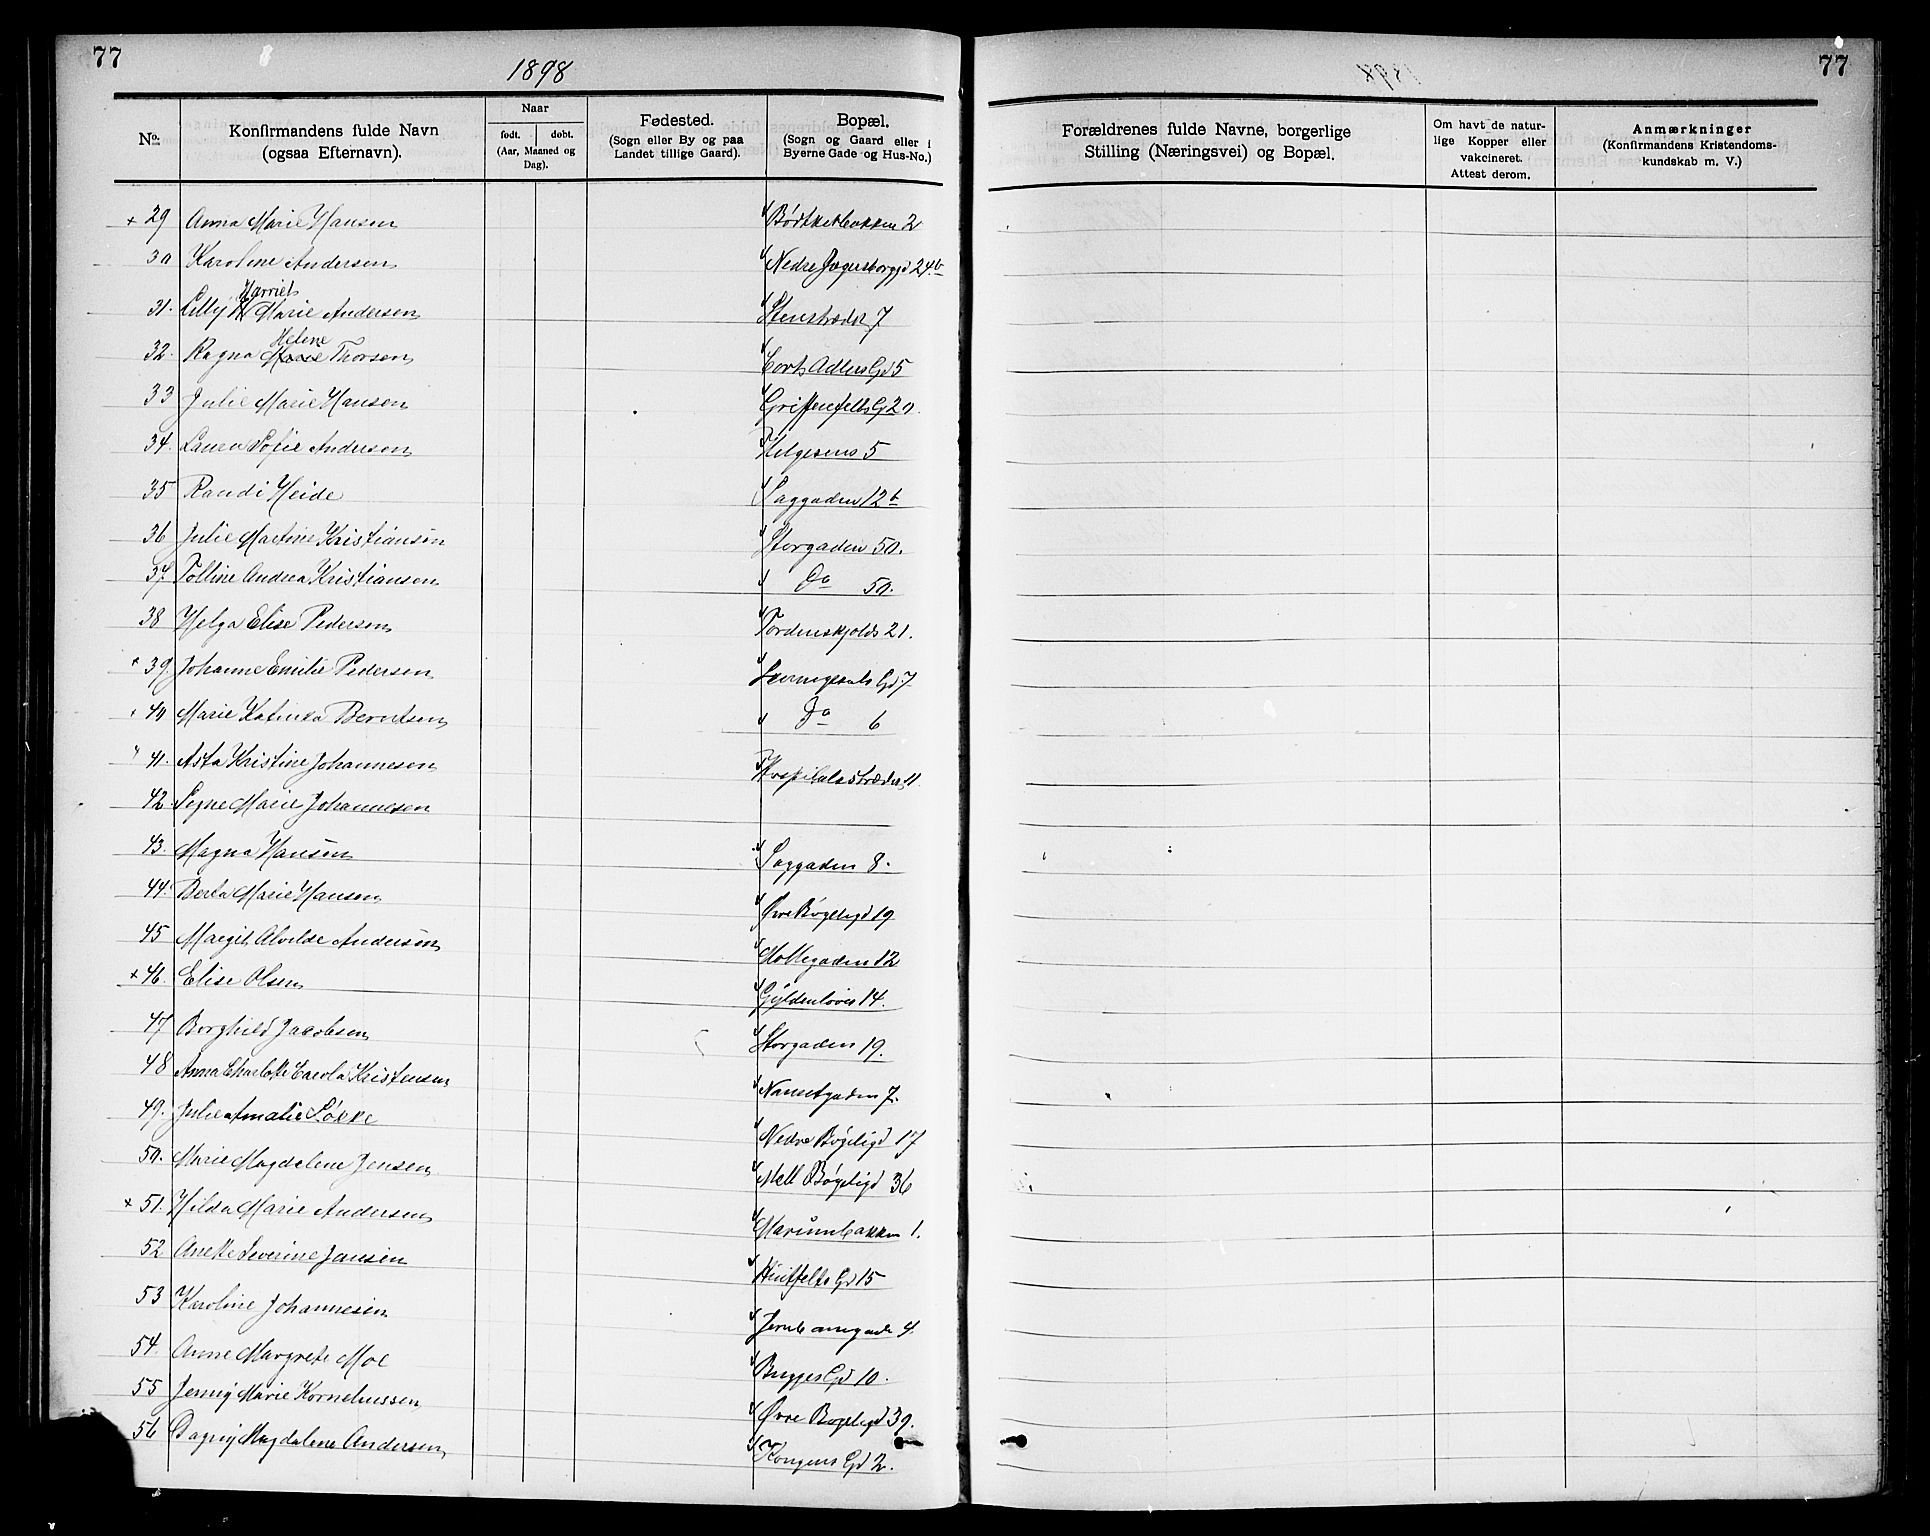 77
1898
No.
Konfirmandens fulde Navn
(ogsaa Efternavn).
Naar
født. døbt.
(Aar, Maaned og
Dag).
Fødested.
(Sogn eller By og paa
Landet tillige Gaard).
Bopæl.
(Sogn og Gaard eller i
Byerne Gade og Hus-No.)
77
Forældrenes fulde Navne, borgerlige
Stilling (Næringsvei) og Bopæl.
Om havt de natur-
lige Kopper eller
vakcineret.
Attest derom.
Anmærkninger
(Konfirmandens Kristendoms-
kundskab m. V.)
× 29 Anna Marie Hansen Bødtkerbakken 2
30 Karoline Andersen Nedre Jegersborggd 24b
Harriet
31. Lilly Marie Andersen Stenstrædet 7
Helene
32. Ragna Marie Thorsen Corts Adlers Gd 5
33 Julie Marie Hansen Griffenfelts G 20.
34. Laura Sofie Andersen Helgesens 5
35 Randi Heide Saggaden 12b
36 Julie Martine Kristiansen Storgaden 50.
37. Tolline Andrea Kristiansen Do 50.
38 Helga Elise Pedersen Tordenskjolds 21.
× 39. Johanne Emilie Pedersen Gd 7
40 Marie Katinka Berntsen Do 6
41. Asta Kristine Johannesen Hospitalsstrædet 11
42. Signe Marie Johannesen
43. Magna Hansen Saggaden 8.
44. Berta Marie Hansen Øvre Bøgeligd 19
45 Margit Alvilde Andersen Møllegaden 12
× 46. Elise Olsen Gyldenløves 14.
47 Borghild Jacobsen Storgaden 19.
48 Anna Charlotte Carola Kristensen Nansetgaden 7.
49. Julie Amalie Løkke Nedre Bøgeligd 17
50. Marie Magdalene Jensen Mell Bøgeligd 36
× 51. Hilda Marie Andersen 1.
52 Anette Severine Jansen Huitfelts Gd 15
53 Karoline Johannesen Jernbanegade 4.
54. Anne Margrete Moe Bugges Gd 10.
55 Jenny Marie Korneliussen Øvre Bøgeligd 39.
56 Dagny Magdalene Andersen Kongens Gd 2.